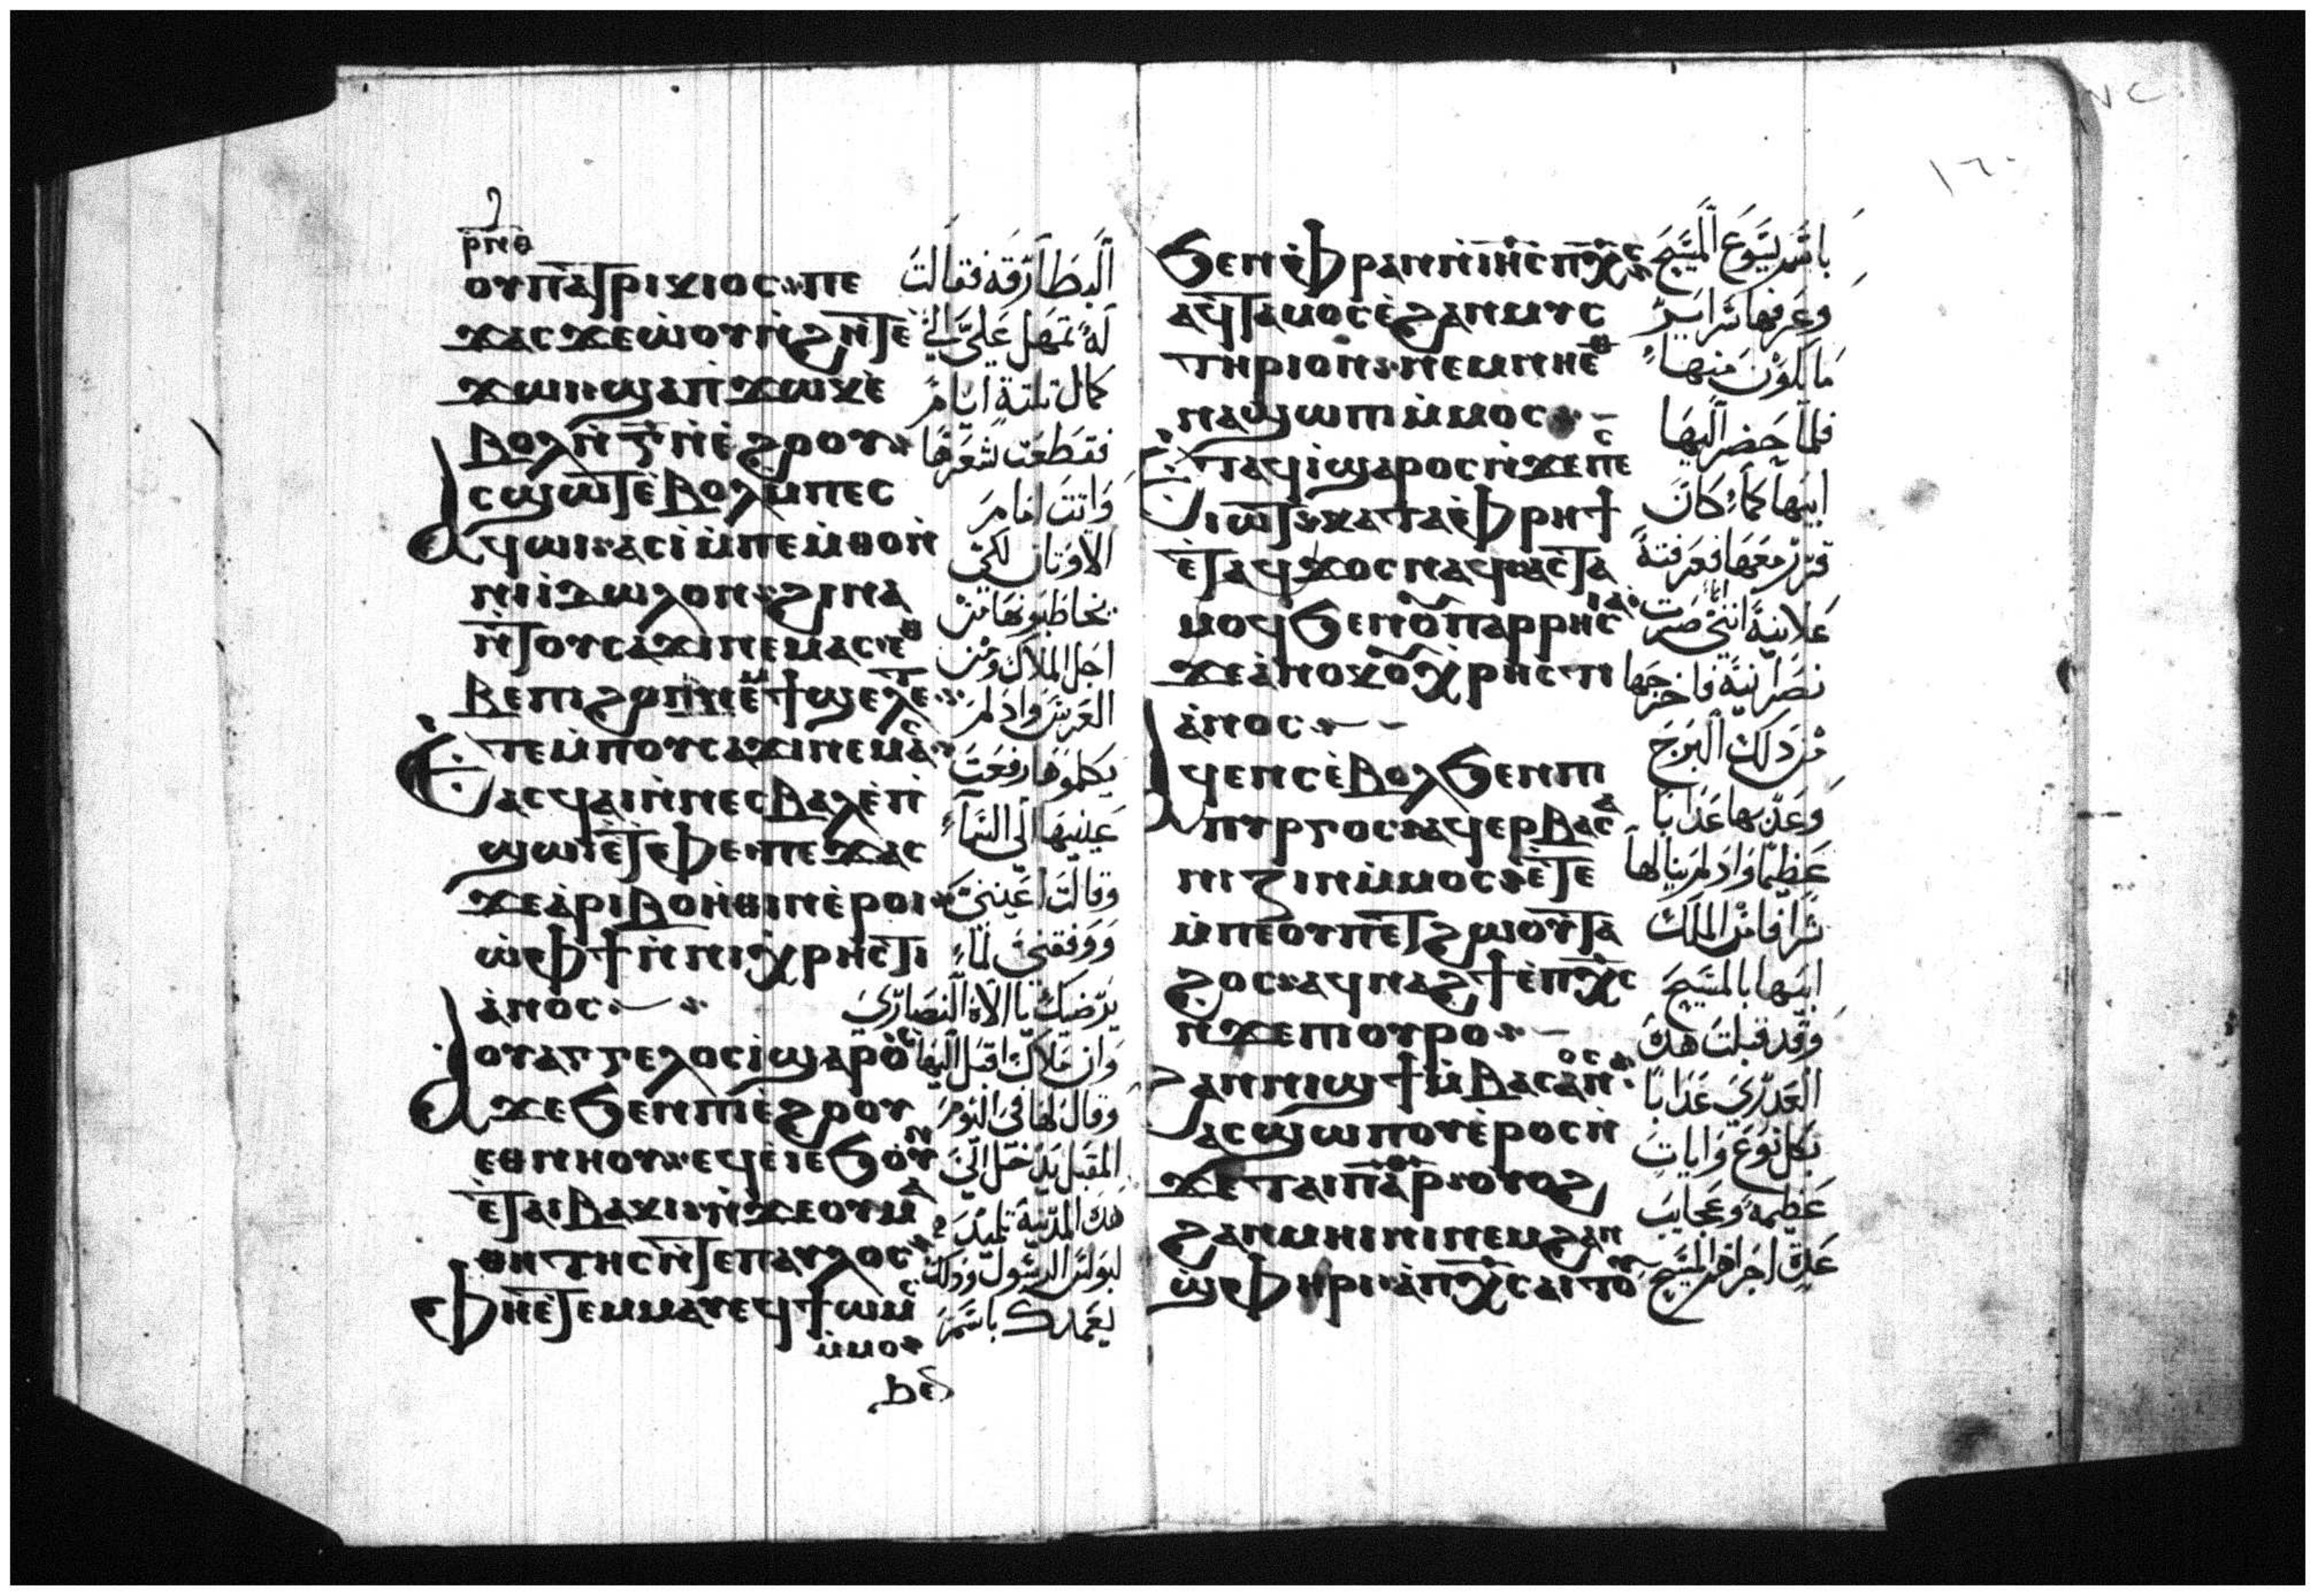 ⲣⲛⲑ
ⲟⲩⲡⲁⲧⲣⲓⲕⲓⲟⲥ ⲡⲉ
ϫⲁⲥ ϫⲉ ⲱⲟⲩⲛ̀ϩⲏⲧ ⲉ̀
ϫⲱⲓ ϣⲁⲡϫⲱⲕ ⲉ̀
ⲃⲟⲗ ⲛ̀ⲅ̅ ⲛ̀ⲉ̀ϩⲟⲟⲩ
ⲁⲥϣⲱⲧ ⲉ̀ⲃⲟⲗ ⲙ̀ⲡⲉⲥ
ϥⲱⲓ ⲁⲥⲓ̀ ⲙ̀ⲡⲉⲙ̀ⲑⲟⲛ
ⲛⲓⲓ̀ⲇⲱⲗⲟⲛ ϩⲓⲛⲁ
ⲛ̀ⲧⲟⲩⲥⲁϫⲓ ⲛⲉⲙⲁⲥ ⲉⲑ
ⲃⲉ ⲡⲓϩⲟⲡ ⲛⲉⲙ ϯϣⲉⲗⲉⲧ
ⲉ̀ⲧⲉⲙ̀ⲡⲟⲩⲥⲁϫⲓ ⲛⲉⲙⲁⲥ
ⲁⲥϥⲁⲓ ⲛ̀ⲛⲉⲥⲃⲁⲗ ⲉ̀ⲡ
ϣⲱⲓ ⲉ̀ⲧⲫⲉ ⲡⲉϫⲁⲥ
ϫⲉ ⲁ̀ⲣⲓⲃⲟⲏ̀ⲑⲓⲛ ⲉ̀ⲣⲟⲓ
ⲱ̀ ⲫϯ ⲛ̀ⲛⲓⲭⲣⲏⲥⲧⲓ
ⲁ̀ⲛⲟⲥ
ⲁⲟⲩⲁⲅⲅⲉⲗⲟⲥ ⲓ̀ ϣⲁⲣⲟⲥ
ϫⲉ ϧⲉⲛ ⲡⲓⲉ̀ϩⲟⲟⲩ
ⲉⲑⲛⲏⲟⲩ ⲉϥⲉ̀ⲓ̀ ⲉ̀ϧⲟⲩⲛ
ⲉ̀ⲧⲁⲓⲃⲁⲕⲓ ⲛ̀ϫⲉ ⲟⲩⲙⲁ
ⲑⲏⲧⲏⲥ ⲛ̀ⲧⲉ ⲡⲁⲩⲗⲟⲥ
ⲫⲏ ⲉ̀ⲧⲉⲙⲙⲁⲩ ⲉϥϯⲱⲙⲥ
ⲙ̀ⲙⲟ
البطارقه فقالت
له تمهل علي الي
كمال تلتة ايام
فقطعت شعرها
واتت امام
الاوتان لكي
يخاطبونها من
اجل الملاك ومن
العريس واد لم
يكلموها رفعت
عينيها الى السماء
وقالت اعينني
ووفقني لما
يرضيك يا الاه النصارى
وان ملاك اقبل اليها
وقال لها في اليوم
المقبل يدخل الي
هده المدينة تلميد
لبولس الرسول ودلك
يعمدك باسم
ϧⲉⲛ ⲫⲣⲁⲛ ⲛ̀ⲓⲏⲥ ⲡⲭⲥ
ⲁϥⲧⲁⲙⲟⲥ ⲉ̀ϩⲁⲛⲙⲩⲥ
ⲧⲏⲣⲓⲟⲛ ⲛⲉⲙ ⲛⲏ ⲉⲑ
ⲛⲁϣⲱⲡⲓ ⲙ̀ⲙⲟⲥ
ⲉ̀ⲧⲁϥⲓ̀ ϣⲁⲣⲟⲥ ⲛ̀ϫⲉ ⲡⲉⲥ
ⲓⲱⲧ ⲕⲁⲧⲁ ⲫⲣⲏϯ
ⲉ̀ⲧⲁϥϫⲟⲥ ⲛⲁⲥ ⲁⲥⲧⲁ
ⲙⲟϥ ϧⲉⲛ ⲟⲩⲡⲁⲣⲣⲏⲥⲓⲁ
ϫⲉ ⲁ̀ⲛⲟⲕ ⲟⲩⲭⲣⲏⲥⲧⲓ
ⲁ̀ⲛⲟⲥ
ⲁϥⲉⲛⲥ ⲉ̀ⲃⲟⲗ ϧⲉⲛ ⲡⲓ
ⲡⲩⲣⲅⲟⲥ ⲁϥⲉⲣⲃⲁⲥⲁ
ⲛⲓⲍⲓⲛ ⲙ̀ⲙⲟⲥ ⲉ̀ⲧⲉ
ⲙ̀ⲡⲉ ⲟⲩⲡⲉⲧϩⲱⲟⲩ ⲧⲁ
ϩⲟⲥ ⲁϥⲛⲁϩϯ ⲉ̀ⲡⲭⲥ
ⲛ̀ϫⲉ ⲡⲟⲩⲣⲟ
ϩⲁⲛⲛⲓϣϯ ⲙ̀ⲃⲁⲥⲁⲛⲟⲥ
ⲁⲥϣⲱⲡⲟⲩ ⲉ̀ⲣⲟⲥ ⲛ̀
ϫⲉ ⲧⲁⲓⲡⲁⲣ ⲟⲩⲟϩ
ϩⲁⲛⲙⲏⲓⲛⲓ ⲛⲉⲙ ϩⲁⲛ
ϣⲫⲏⲣⲓ ⲁ̀ⲡⲭⲥ ⲁⲓⲧⲟⲩ
باسم يسوع المسيح
وعرفها سراير
ما يكون منها
فلما حضر اليها
ابيها كما كان
قرر معها فعرفته
علانية انني صرت
نصرانية فاخرجها
من دلك البرج
وعدبها عدابا
عظيما واد لم ينالها
شرا فامن الملك
ابيها بالمسيح
وقد قبلت هده
العدرى عدابا
بكل نوع وايات
عظيمه وعجايب
عدة اجراهم المسيح
١٦٠